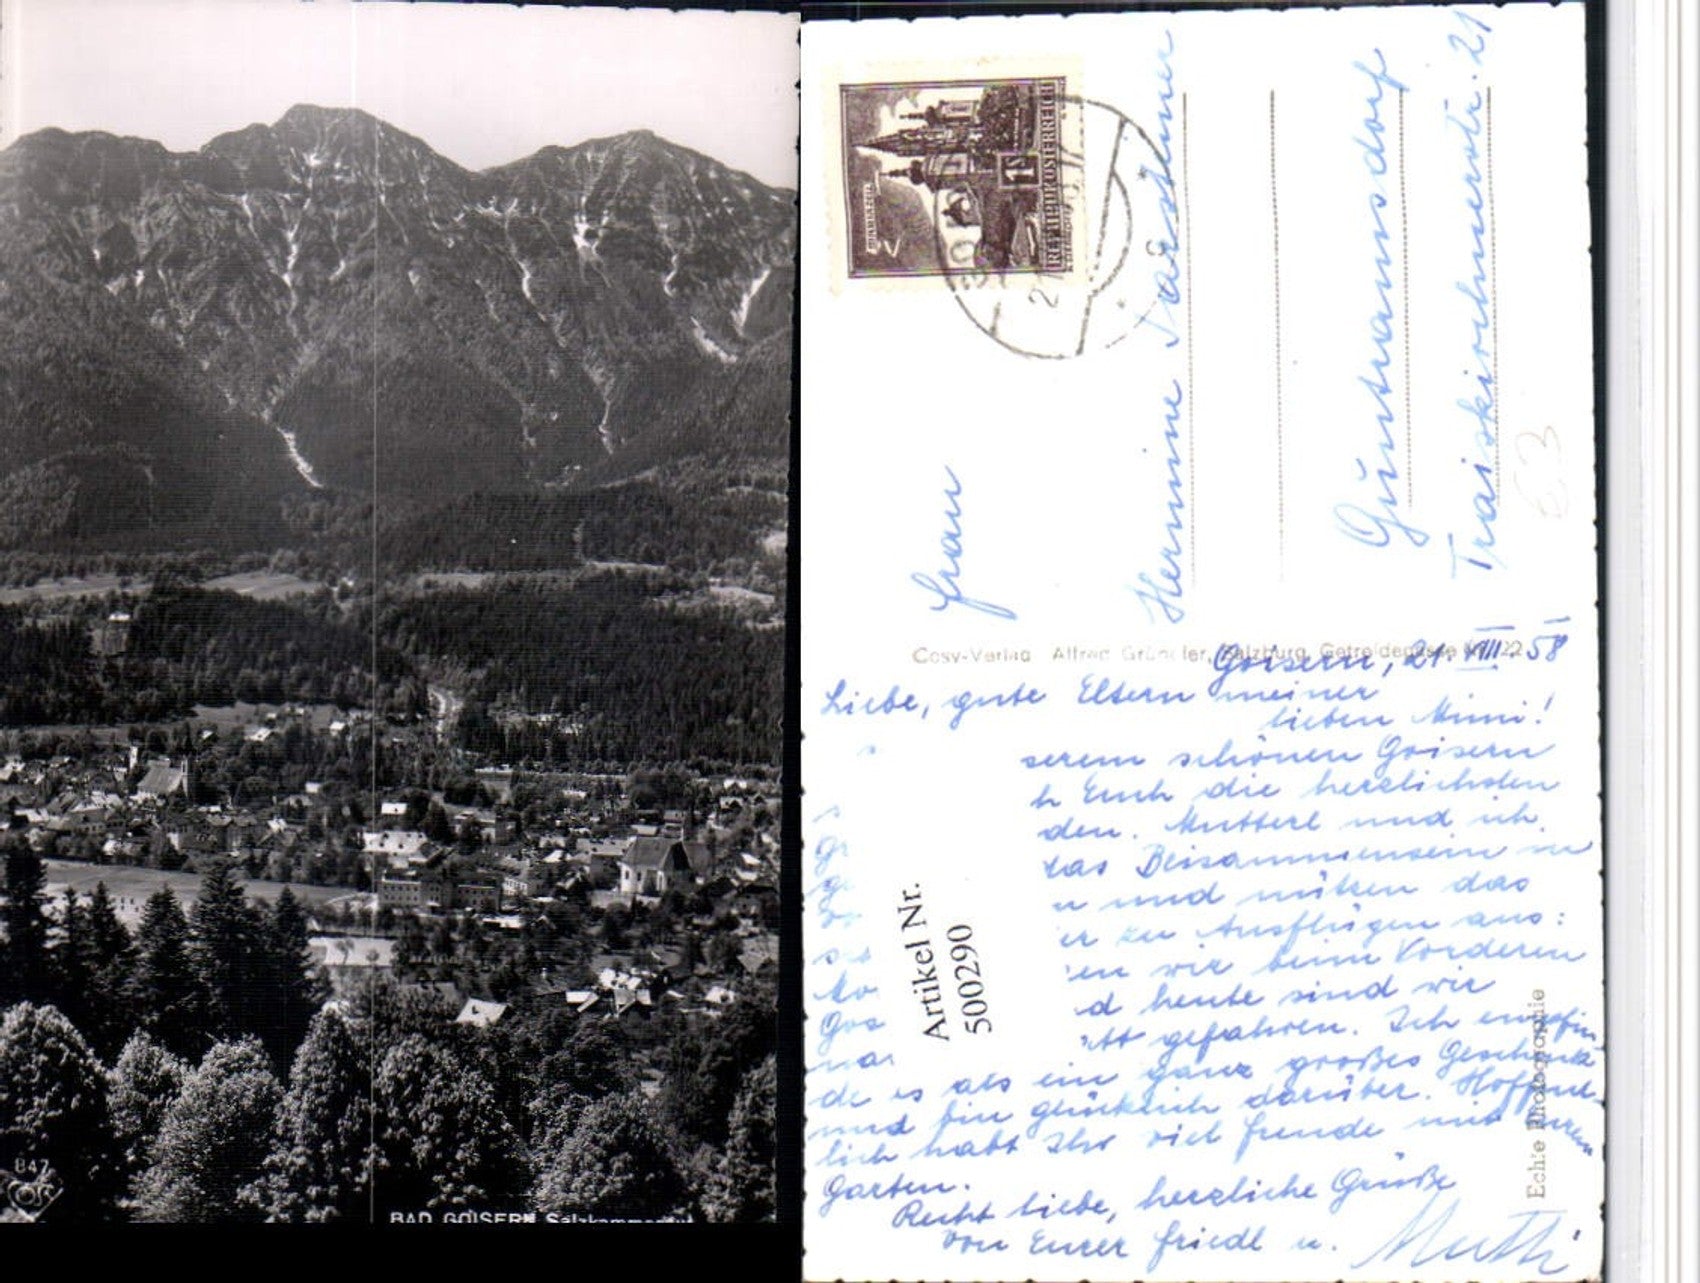 847
BAD GOISERN Salzkammergut
MARIAZELL
1S
REPUBLIK ÖSTERREICH
Frau
Hermine
Guntramsdorf
Traiskirchnerstr. 21
Cosy-Verlag Alfred Gründler, Salzburg, Getreidegasse 22
Goisern, 21. VIII. 58
Liebe, gute Eltern meiner
lieben Mimi!
serem schönen Goisern
h Euch die herzlichsten
den. Mutterl und ich
das Beisammensein in
n und nützen das
er zu Ausflügen aus:
en wir beim Vorderen
d heute sind wir
att gefahren. Ich empfin-
de es als ein ganz großes Geschenk
und bin glücklich darüber. Hoffent-
lich habt Ihr viel Freude mit Eurem
Garten.
Recht liebe, herzliche Grüße
von Eurer Friedl u. Mutti
Artikel Nr.
500290
Echte Photographie
E3